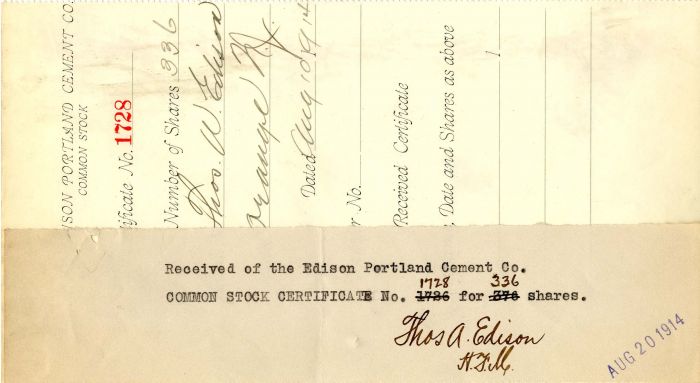 ISON PORTLAND CEMENT CO.
COMMON STOCK
tificate No. 1728
Number of Shares 336
Thos. A. Edison
Orange N.J.
Dated Aug 10 1914
r No.
Received Certificate
, Date and Shares as above
Received of the Edison Portland Cement Co.
1728 336
COMMON STOCK CERTIFICATE No. 1726 for 376 shares.
Thos A. Edison
H.F.M.
AUG 20 1914